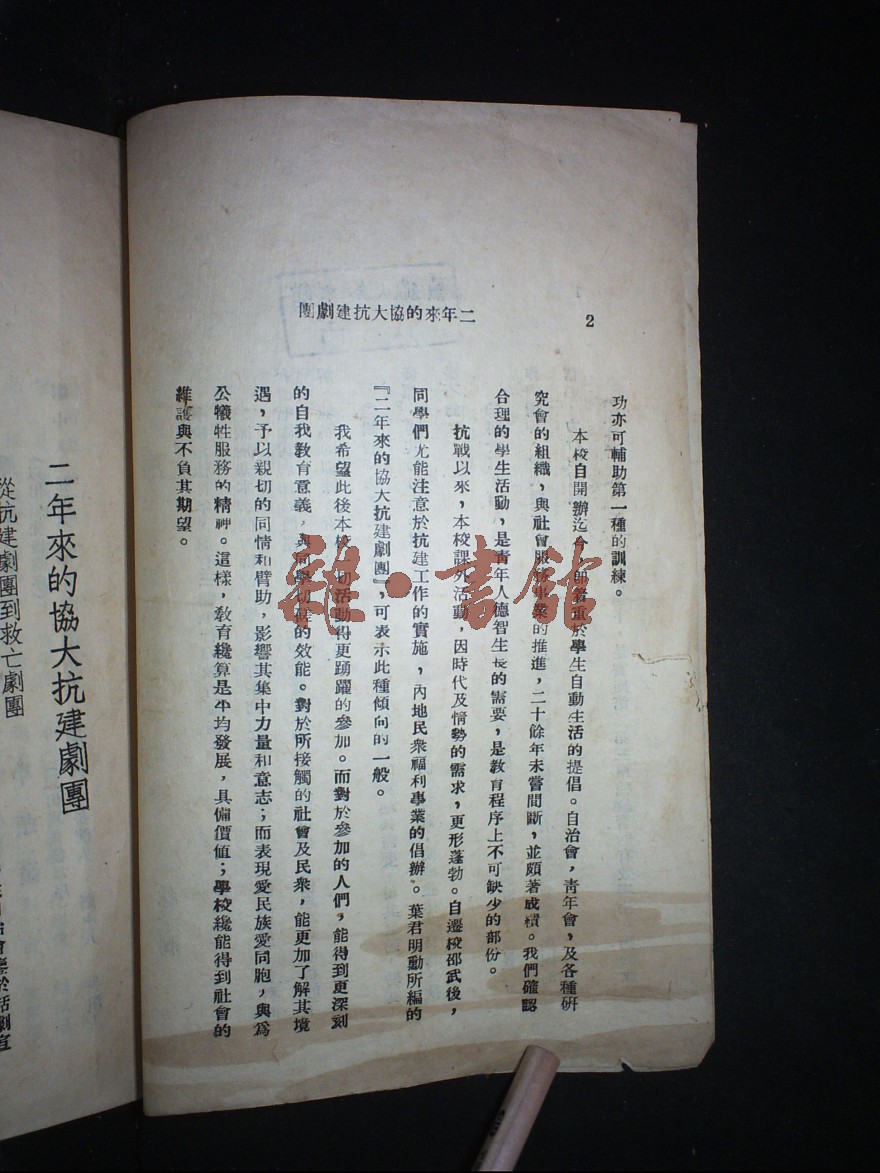 2
二年來的協大抗建劇團
功亦可輔助第一種的訓練。
本校自開辦迄今，即着重於學生自動生活的提倡。自治會，青年會，及各種研
究會的組織，與社會服務事業的推進，二十餘年未嘗間斷，並頗著成績。我們確認
合理的學生活動，是青年人德智生長的需要，是教育程序上不可缺少的部份。
抗戰以來，本校課外活動，因時代及情勢的需求，更形蓬勃。自遷校邵武後，
同學們尤能注意於抗建工作的實施，內地民衆福利事業的倡辦。葉君明勳所編的
『二年來的協大抗建劇團』，可表示此種傾向的一般。
我希望此後本校一切活動得更踴躍的參加。而對於參加的人們，能得到更深刻
的自我教育意義，與同學切磋的效能。對於所接觸的社會及民衆，能更加了解其境
遇，予以親切的同情和臂助，影響其集中力量和意志；而表現愛民族愛同胞，與爲
公犧牲服務的精神。這樣，敎育纔算是平均發展，具備價値；學校纔能得到社會的
維護與不負其期望。
二年來的協大抗建劇團
從抗建劇團到救亡劇團
雜·書館